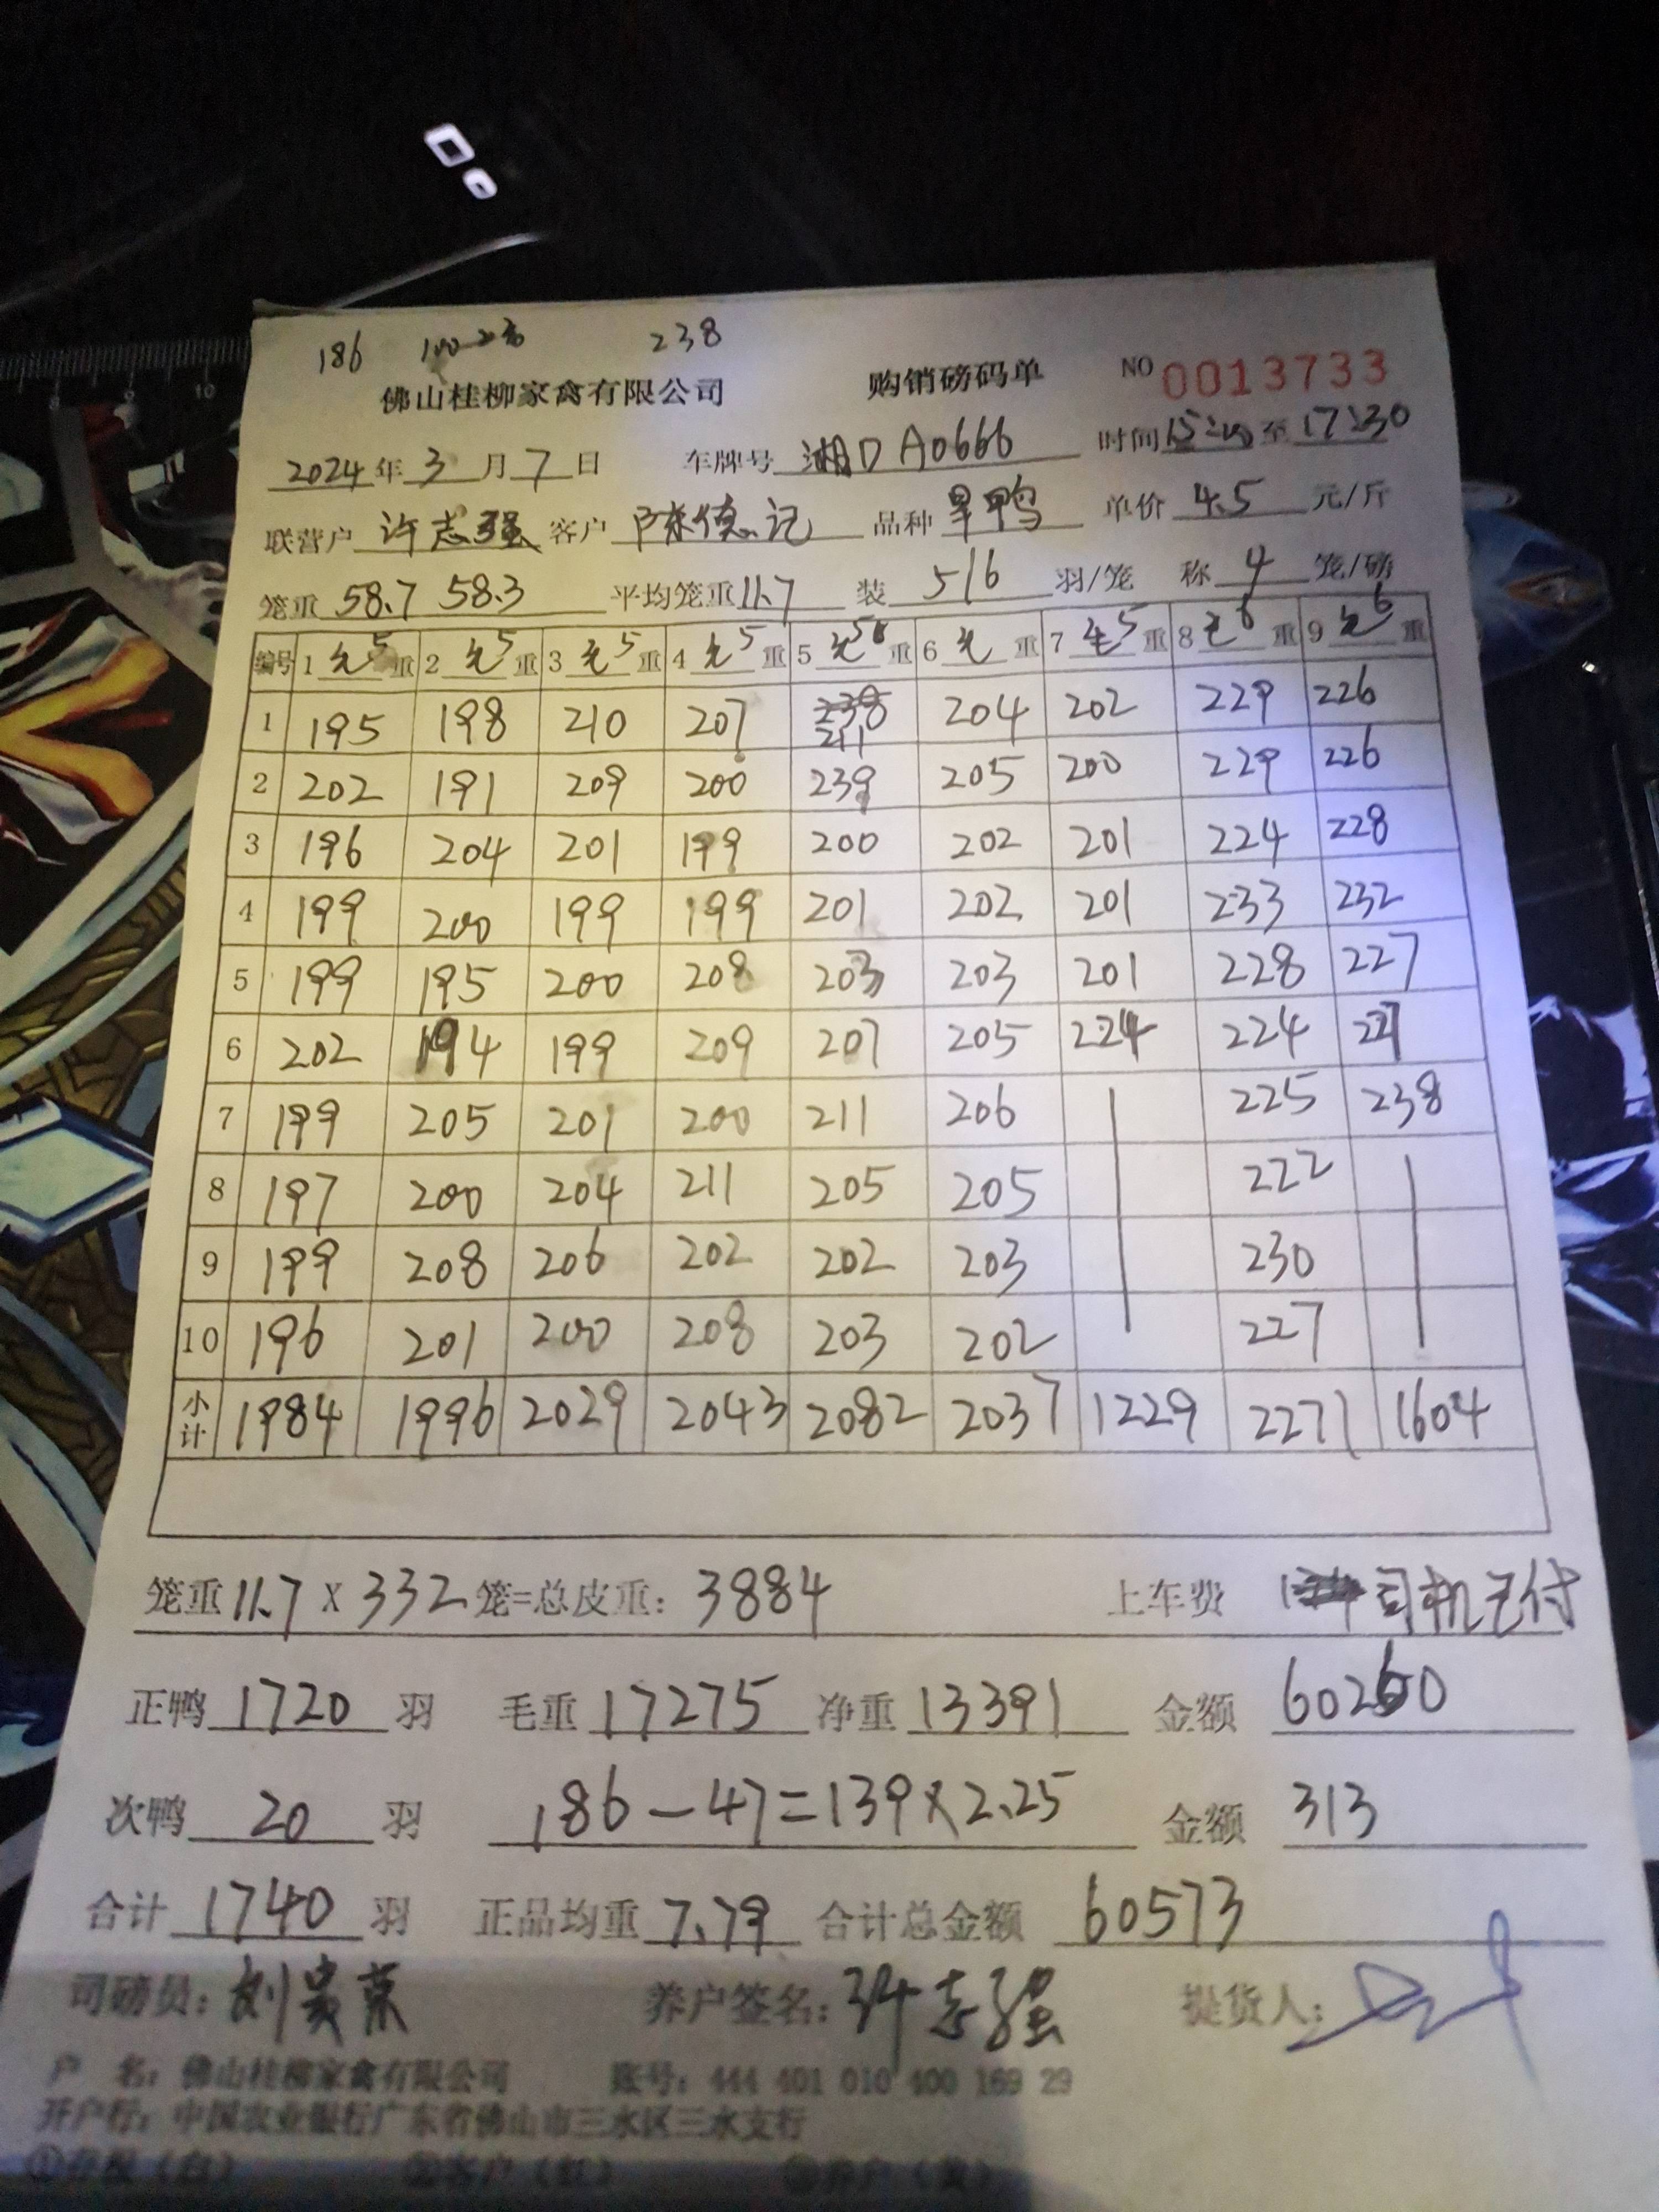 186 238
佛山桂柳家禽有限公司 购销磅码单 NO 0013733
2024年3月7日 车牌号 湘D A0666 时间 至 17:30
联营户 许志强 客户 陈德记 品种 旱鸭 单价 4.5 元/斤
笼重 58.7 58.3 平均笼重 11.7 装 5/6 羽/笼 称 4 笼/磅
编号 1 5 重 2 5 重 3 5 重 4 5 重 5 重 6 重 7 5 重 8 6 重 9 6 重
1 195 198 210 207 238 211 204 202 229 226
2 202 191 209 200 239 205 200 229 226
3 196 204 201 199 200 202 201 224 228
4 199 200 199 199 201 202 201 233 232
5 199 195 200 208 203 203 201 228 227
6 202 194 199 209 207 205 224 224 227
7 199 205 201 200 211 206 225 238
8 197 200 204 211 205 205 222
9 199 208 206 202 202 203 230
10 196 201 200 208 203 202 227
小计 1984 1996 2029 2043 2082 2037 1229 2271 1604
笼重 11.7 X 332 笼=总皮重: 3884 上车费 司机已付
正鸭 1720 羽 毛重 17275 净重 13391 金额 60260
次鸭 20 羽 186-47=139×2.25 金额 313
合计 1740 羽 正品均重 7.79 合计总金额 60573
司磅员: 养户签名: 许志强 提货人:
户 名: 佛山桂柳家禽有限公司 账号: 444 401 010 400 169 29
开户行: 中国农业银行广东省佛山市三水区三水支行
②客户（红）